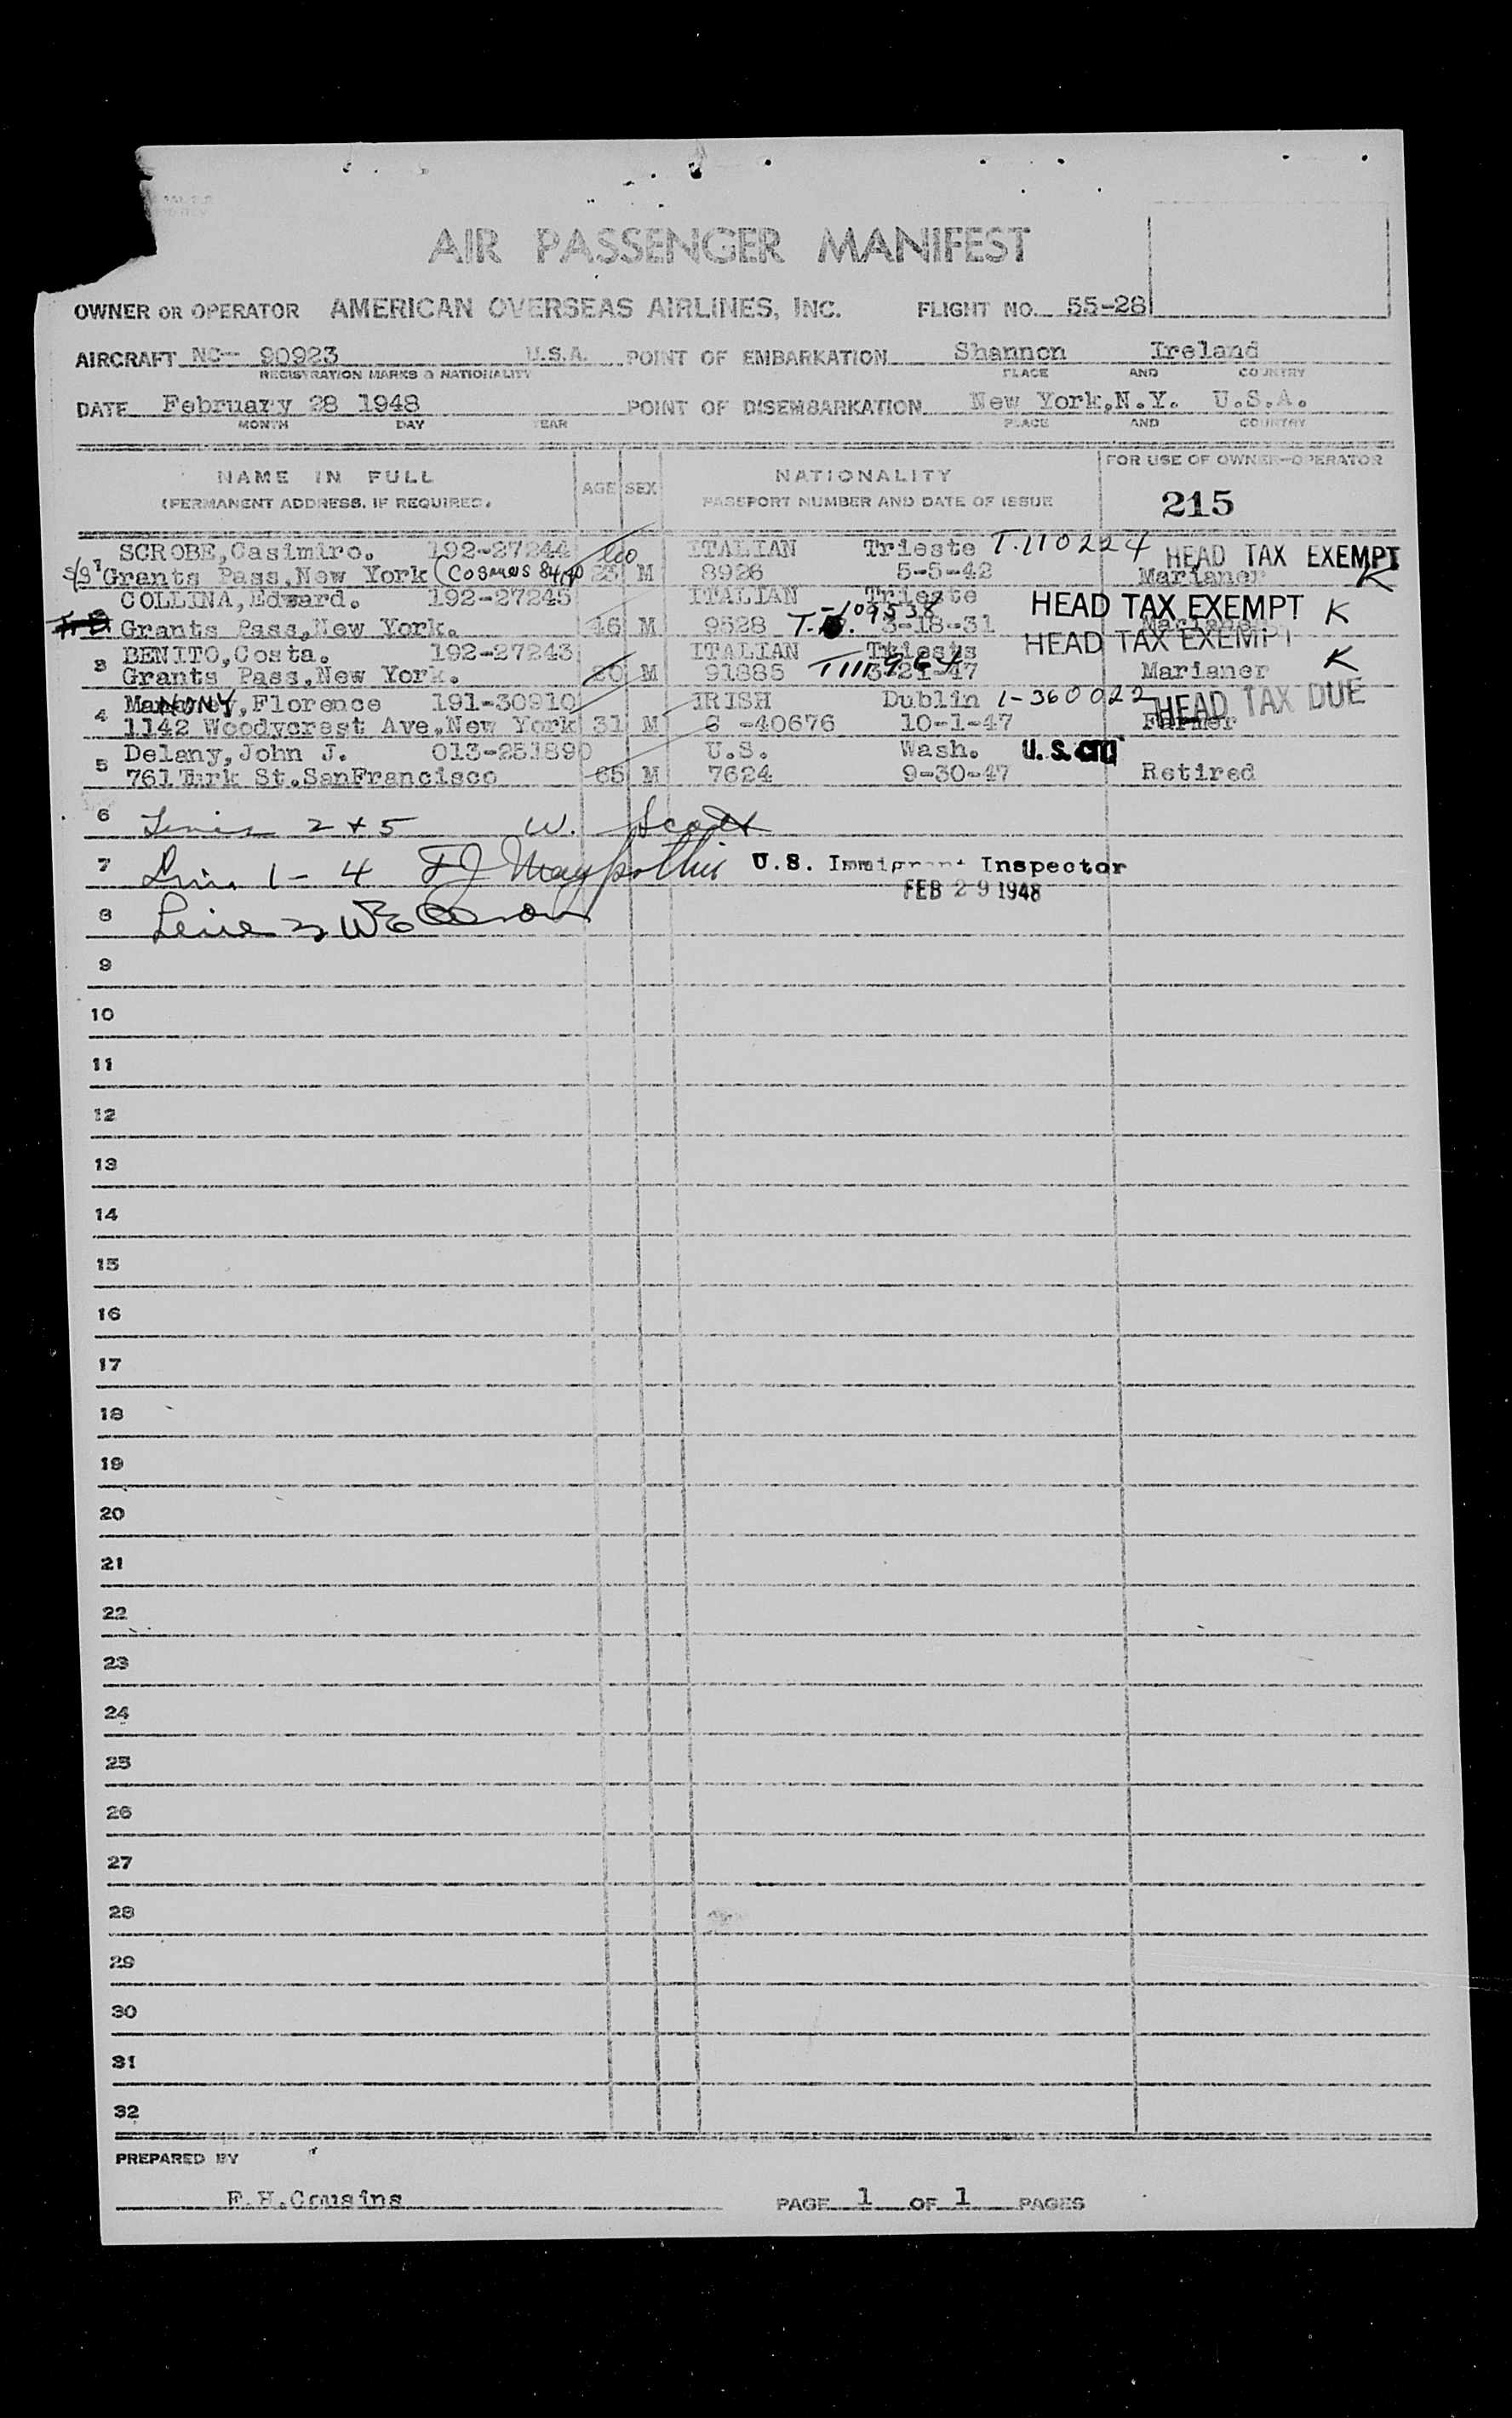 AIR PASSENGER MANIFEST
OWNER OR OPERATOR AMERICAN OVERSEAS AIRLINES, INC. FLIGHT NO. 55-28
AIRCRAFT NC- 90923 U.S.A. POINT OF EMBARKATION Shannon Ireland
REGISTRATION MARKS & NATIONALITY PLACE AND COUNTRY
DATE February 28 1948 POINT OF DISEMBARKATION New York,N.Y. U.S.A.
MONTH DAY YEAR PLACE AND COUNTRY
NAME IN FULL AGE SEX NATIONALITY FOR USE OF OWNER-OPERATOR
(PERMANENT ADDRESS, IF REQUIRED. PASSPORT NUMBER AND DATE OF ISSUE 215
SCROBE,Casimiro. 192-27244 ITALIAN Trieste T.110224 HEAD TAX EXEMPT
1 Grants Pass,New York 23 M 8926 5-5-42 Marianer K
COLLINA,Edward. 192-27245 ITALIAN Trieste HEAD TAX EXEMPT K
Grants Pass,New York. 46 M 9528 T-109538 3-18-31 Marianer
BENITO,Costa. 192-27243 ITALIAN Trieste HEAD TAX EXEMPT
3 Grants Pass,New York. 20 M 91885 3-21-47 Marianer K
Florence 191-30910 IRISH Dublin 1-360022 HEAD TAX DUE
4 1142 Woodycrest Ave,New York 31 M C -40676 10-1-47 Farmer
Delany,John J. 013-251890 U.S. Wash. U.S. CIT
5 761 Turk St.SanFrancisco 65 M 7624 9-30-47 Retired
6 2 + 5 W. Scott
7 1 - 4 U.S. Immigrant Inspector
FEB 29 1948
8 Line 3
9
10
11
12
13
14
15
16
17
18
19
20
21
22
23
24
25
26
27
28
29
30
31
32
PREPARED BY
F.H.Cousins PAGE 1 OF 1 PAGES